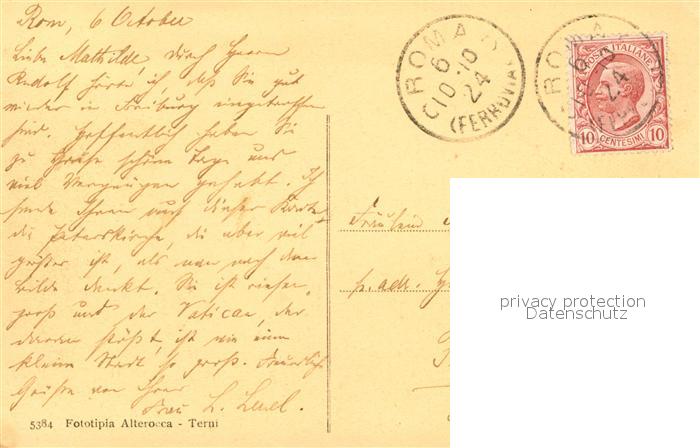 Rom, 6 October
Liebe Mathilde, durch Herrn
Rudolf hörte ich, daß Sie gut
wieder in Freiburg eingetroffen
sind. Hoffentlich haben Sie
zu Hause schöne Tage und
viel Vergnügen gehabt. Ich
sende Ihnen auf dieser Karte
die Peterskirche, die aber viel
größer ist, als man nach dem
Bilde denkt. Sie ist riesen-
groß und der Vatican, der
daran stößt, ist wie eine
kleine Stadt so groß. Freundliche
Grüße von Ihrer
Frau L.
5384 Fototipia Alterocca - Terni
ROMA
6
10·10
24
(FERROVIA)
ROMA
6
10
24
POSTE ITALIANE
10 CENTESIMI 10
Fräulein
p. adr.
privacy protection
Datenschutz